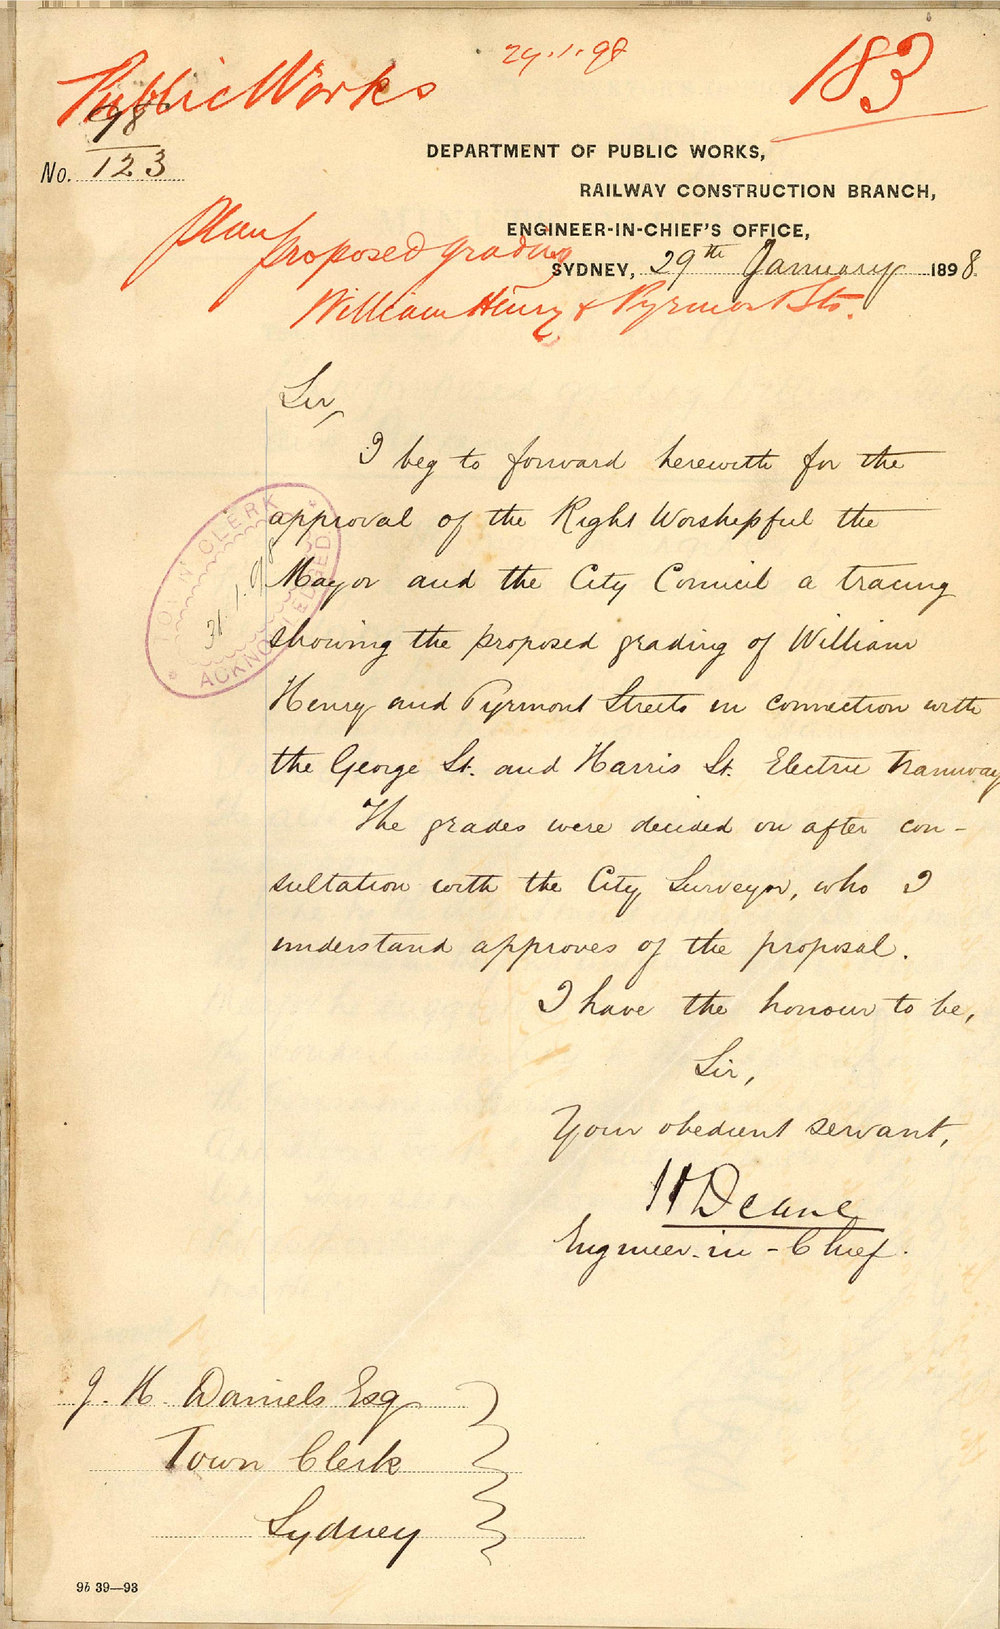 Public Works
29.1.98
183
98
No. 123
DEPARTMENT OF PUBLIC WORKS,
RAILWAY CONSTRUCTION BRANCH,
ENGINEER-IN-CHIEF'S OFFICE,
SYDNEY, 29th January 1898.
Plan
proposed grading
William Henry & Pyrmont Sts.
Sir,
I beg to forward herewith for the
approval of the Right Worshipful the
Mayor and the City Council a tracing
showing the proposed grading of William
Henry and Pyrmont Streets in connection with
the George St. and Harris St. Electric Tramway
The grades were decided on after con-
sultation with the City Surveyor, who I
understand approves of the proposal.
I have the honour to be,
Sir,
Your obedient servant,
H Deane
Engineer-in-Chief.
TOWN CLERK
31.1.98
ACKNOWLEDGED
J. H. Daniels Esq
Town Clerk
Sydney
9b 39—93